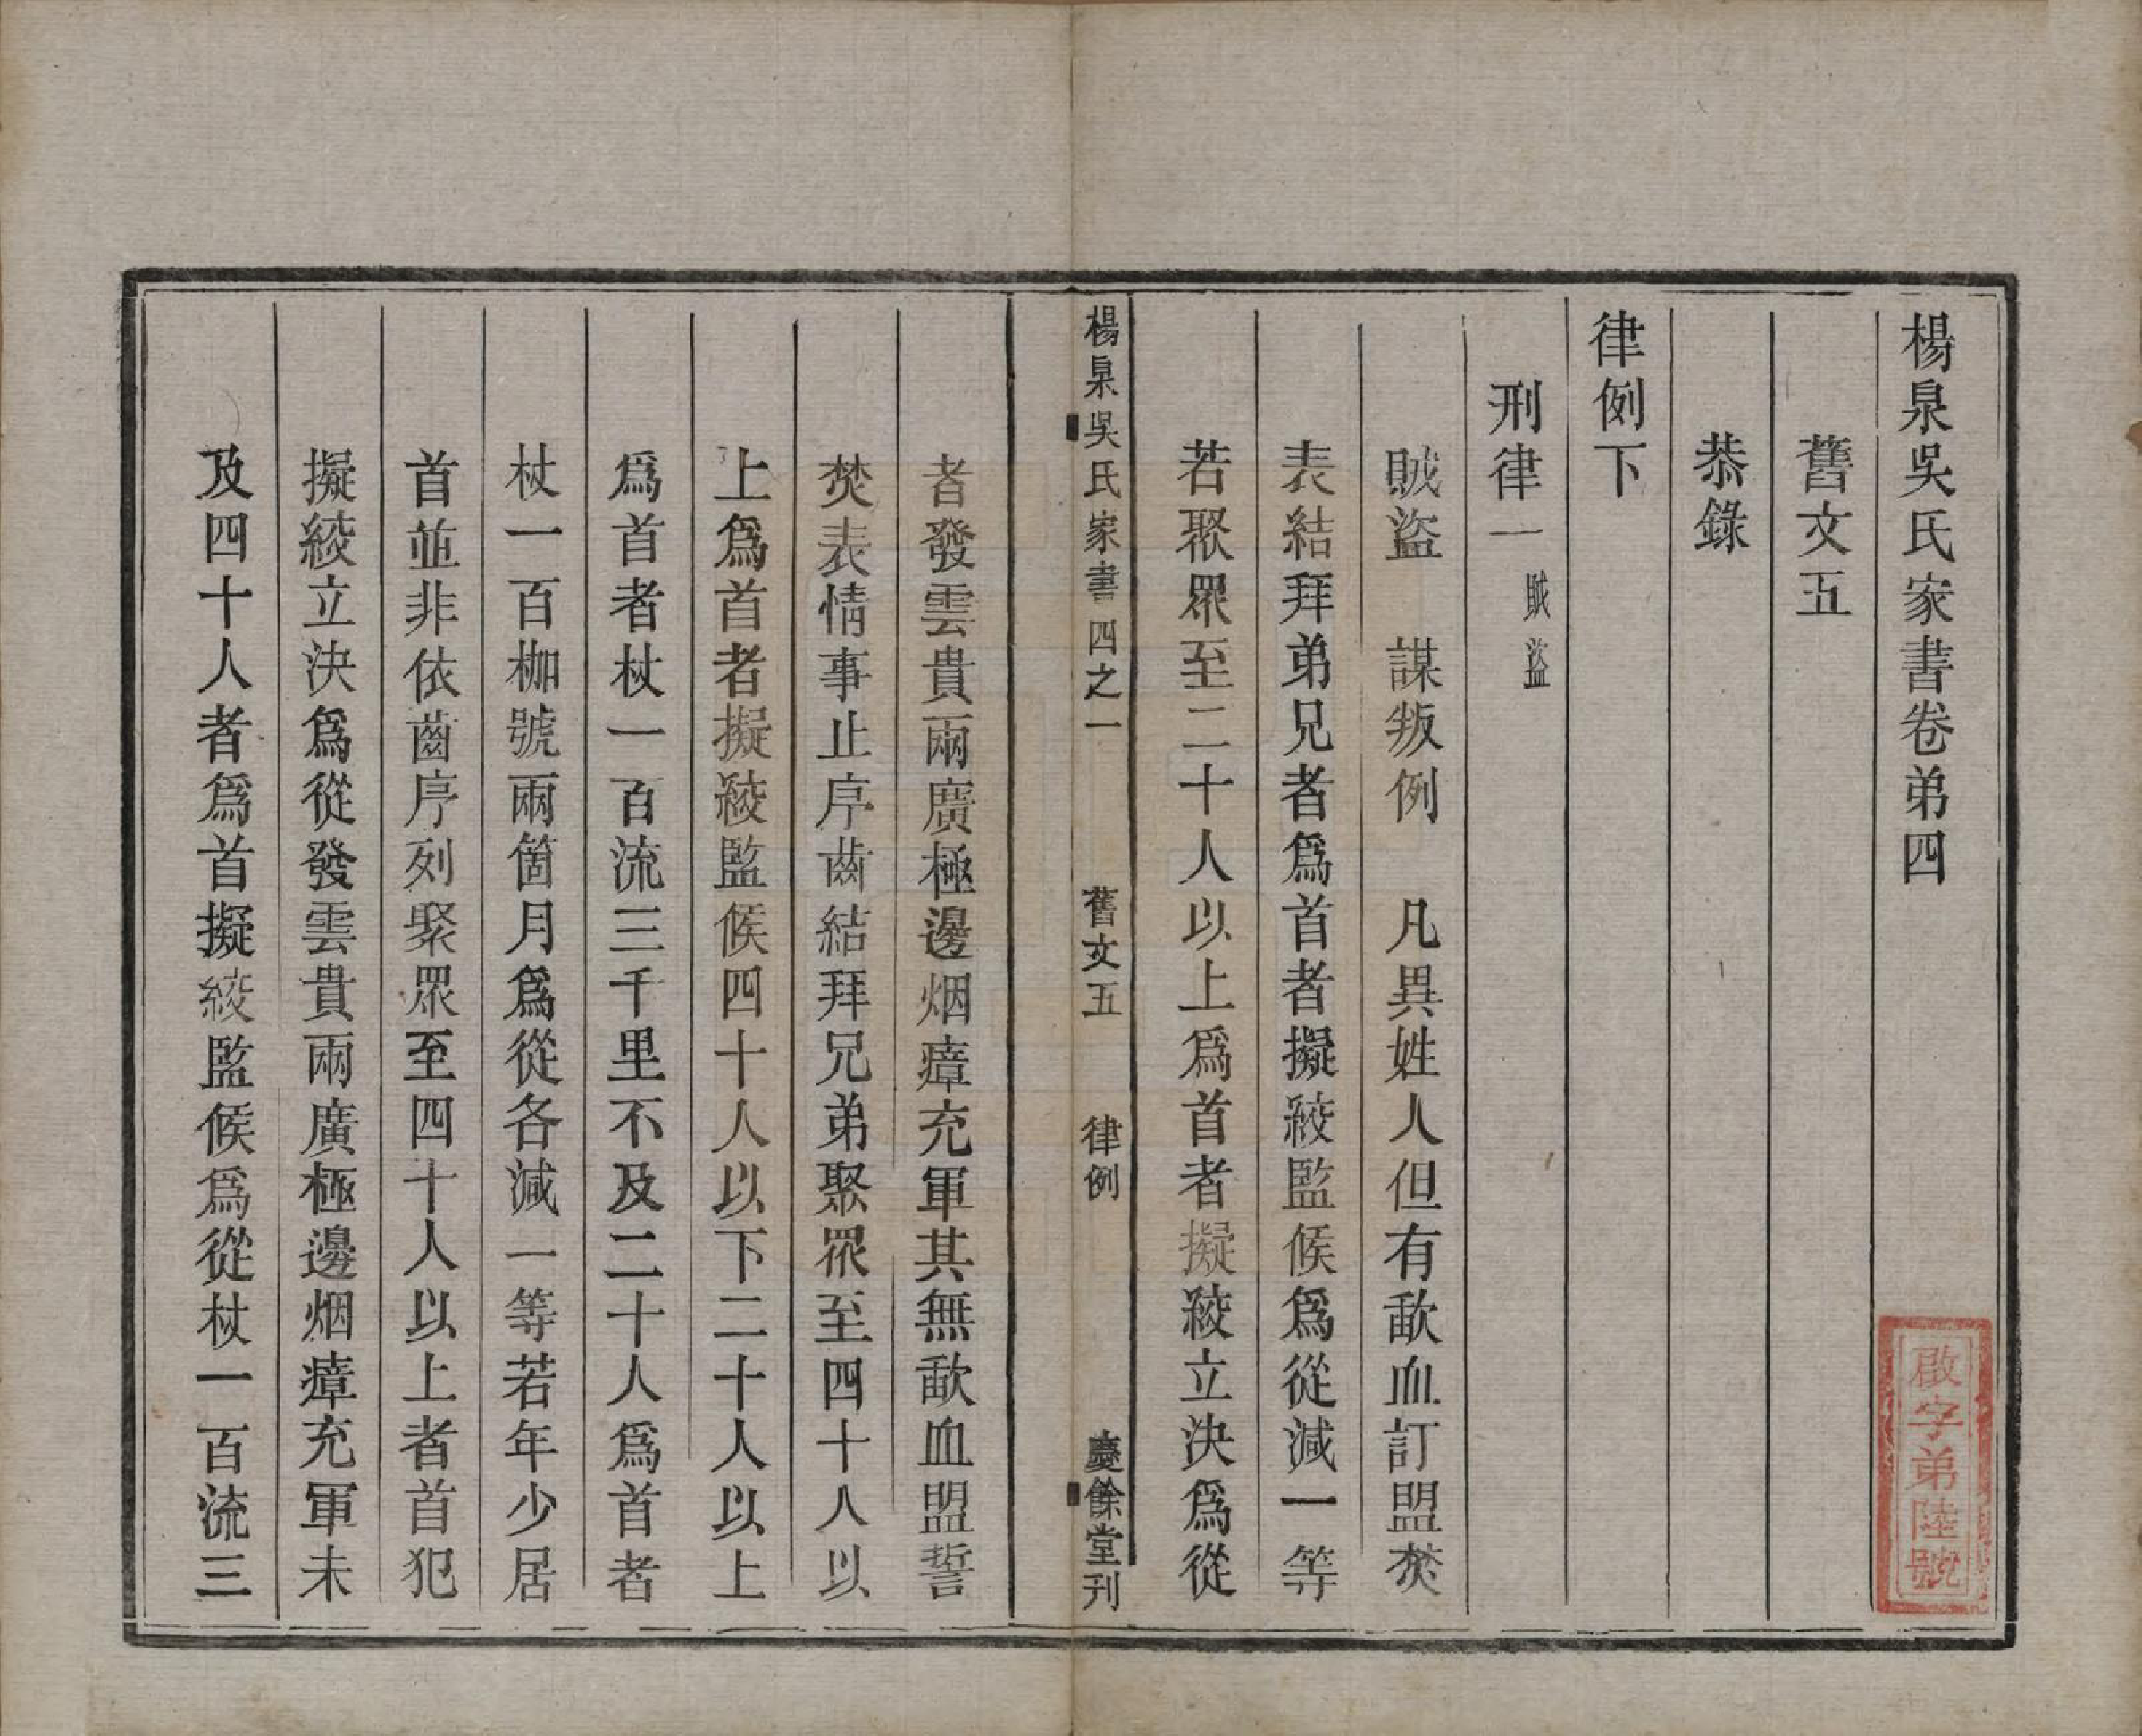 楊泉吳氏家書卷弟四
舊文五
恭錄
律例下
刑律一 賊盜
賊盜　謀叛例　凡異姓人但有歃血訂盟焚
表結拜弟兄者爲首者擬絞監候爲從減一等
若聚眾至二十人以上爲首者擬絞立決爲從
楊泉吳氏家書四之一　舊文五　律例　慶餘堂刊
者發雲貴兩廣極邊烟瘴充軍其無歃血盟誓
焚表情事止序齒結拜兄弟聚眾至四十人以
上爲首者擬絞監候四十人以下二十人以上
爲首者杖一百流三千里不及二十人爲首者
杖一百枷號兩箇月爲從各減一等若年少居
首並非依齒序列聚眾至四十人以上者首犯
擬絞立決爲從發雲貴兩廣極邊烟瘴充軍未
及四十人者爲首擬絞監候爲從杖一百流三
啟字弟陸號